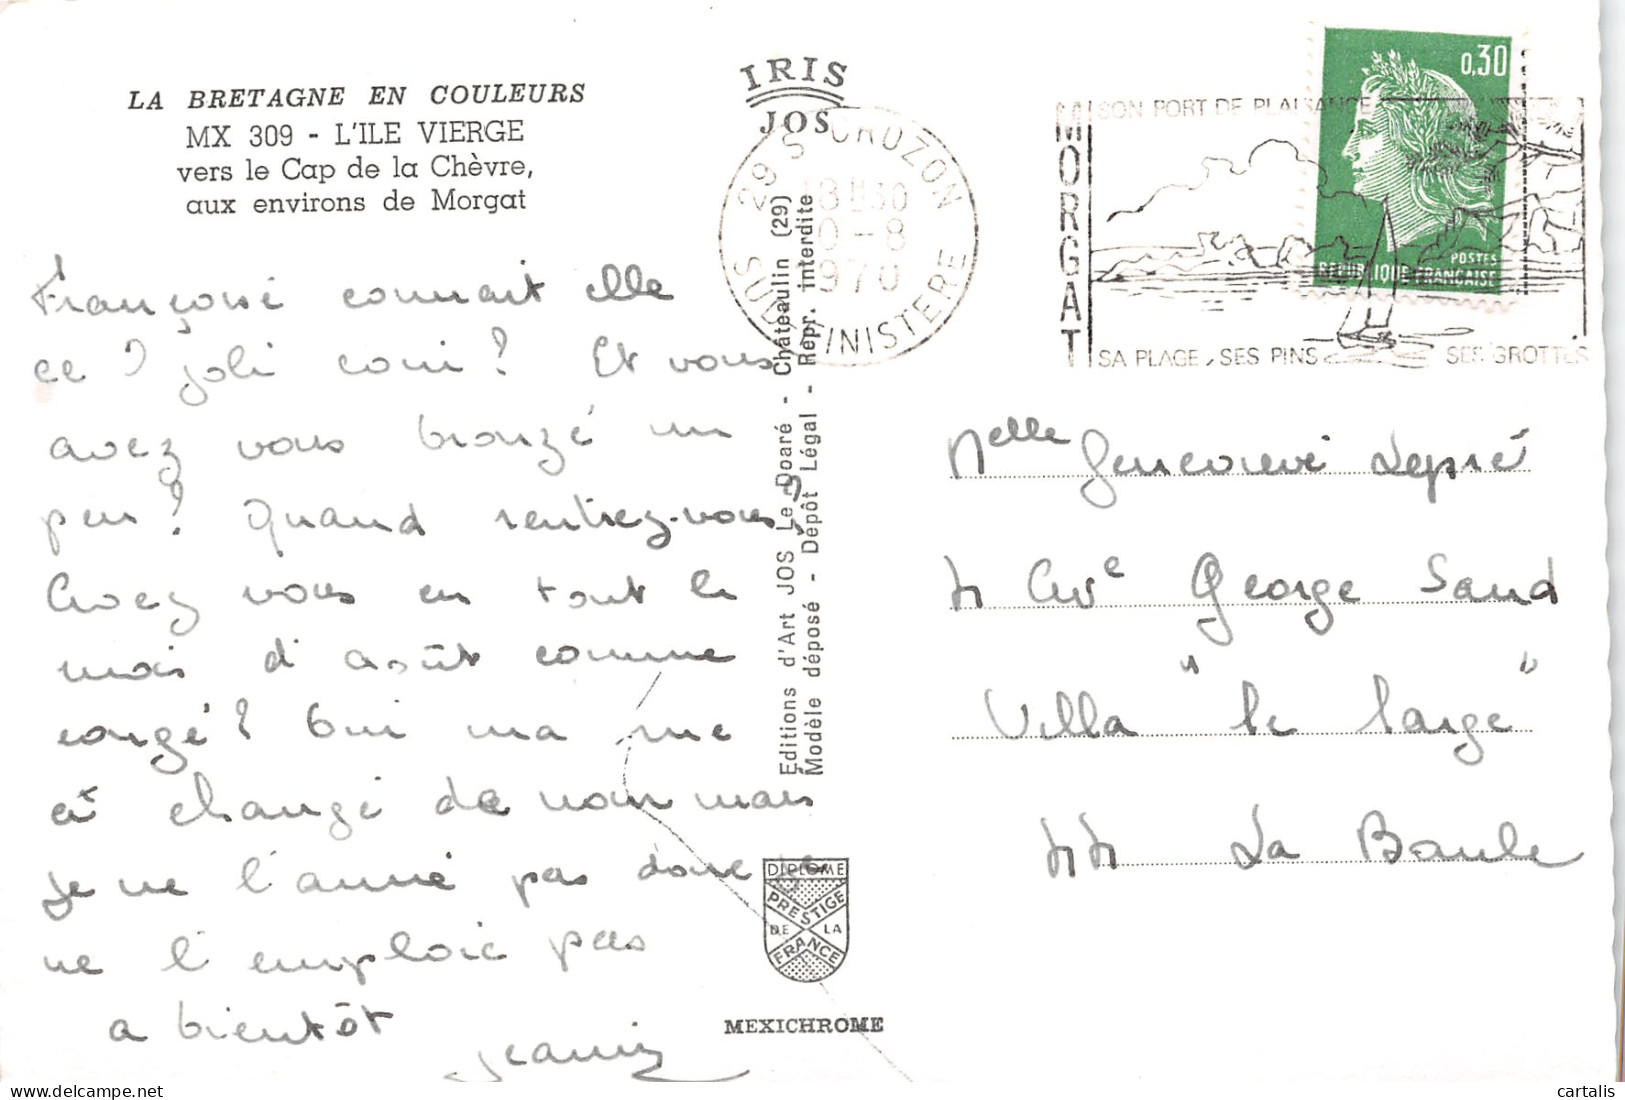 LA BRETAGNE EN COULEURS
MX 309 - L'ILE VIERGE
vers le Cap de la Chèvre,
aux environs de Morgat
Françoise connait elle
ce joli coin? Et vous
avez vous bronzé un
peu? Quand rentrez-vous?
Avez vous en tout le
mois d'août comme
congé? Oui ma rue
a changé de nom mais
je ne l'aimé pas donc je
ne l'emploie pas
a bientôt
IRIS
JOS
29 S CROZON
18H30
10-8
1970
SUD FINISTERE
Editions d'Art JOS Le Doaré - Châteaulin (29)
Modèle déposé - Dépôt Légal - Repr. interdite
DIPLOME
PRESTIGE
DE LA
FRANCE
MEXICHROME
MORGAT
SON PORT DE PLAISANCE
SA PLAGE, SES PINS
SES GROTTES
0,30
POSTES
REPUBLIQUE FRANÇAISE
Melle Genevieve Lepré
4 Ave George Sand
Villa "le large"
44 La Baule
cartalis